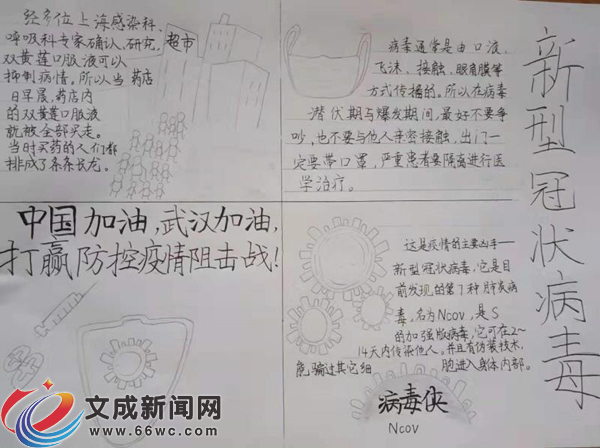 经多位上海感染科、
呼吸科专家确认、研究,
双黄莲口服液可以
抑制病情。所以当
日早晨,药店内
的双黄莲口服液
就被全部买走。
当时买药的人们都
排成了条条长龙。
超市
药店
病毒通常是由口液、
飞沫、接触、眼角膜等
方式传播的。所以在病毒
潜伏期与爆发期间,最好不要争
吵,也不要与他人亲密接触,出门一
定要带口罩,严重患者要隔离进行医
学治疗。
新型冠状病毒
中国加油,武汉加油,
打赢防控疫情阻击战!
这是疫情的主要凶手——
新型冠状病毒,它是目
前发现的第7种肺炎病
毒,名为Ncov,是S
的加强版病毒,它可在2~
14天内传染他人。并且有伪装技术,
能骗过其它细 胞进入身体内部。
病毒侠
Ncov
文成新闻网
www.66wc.com